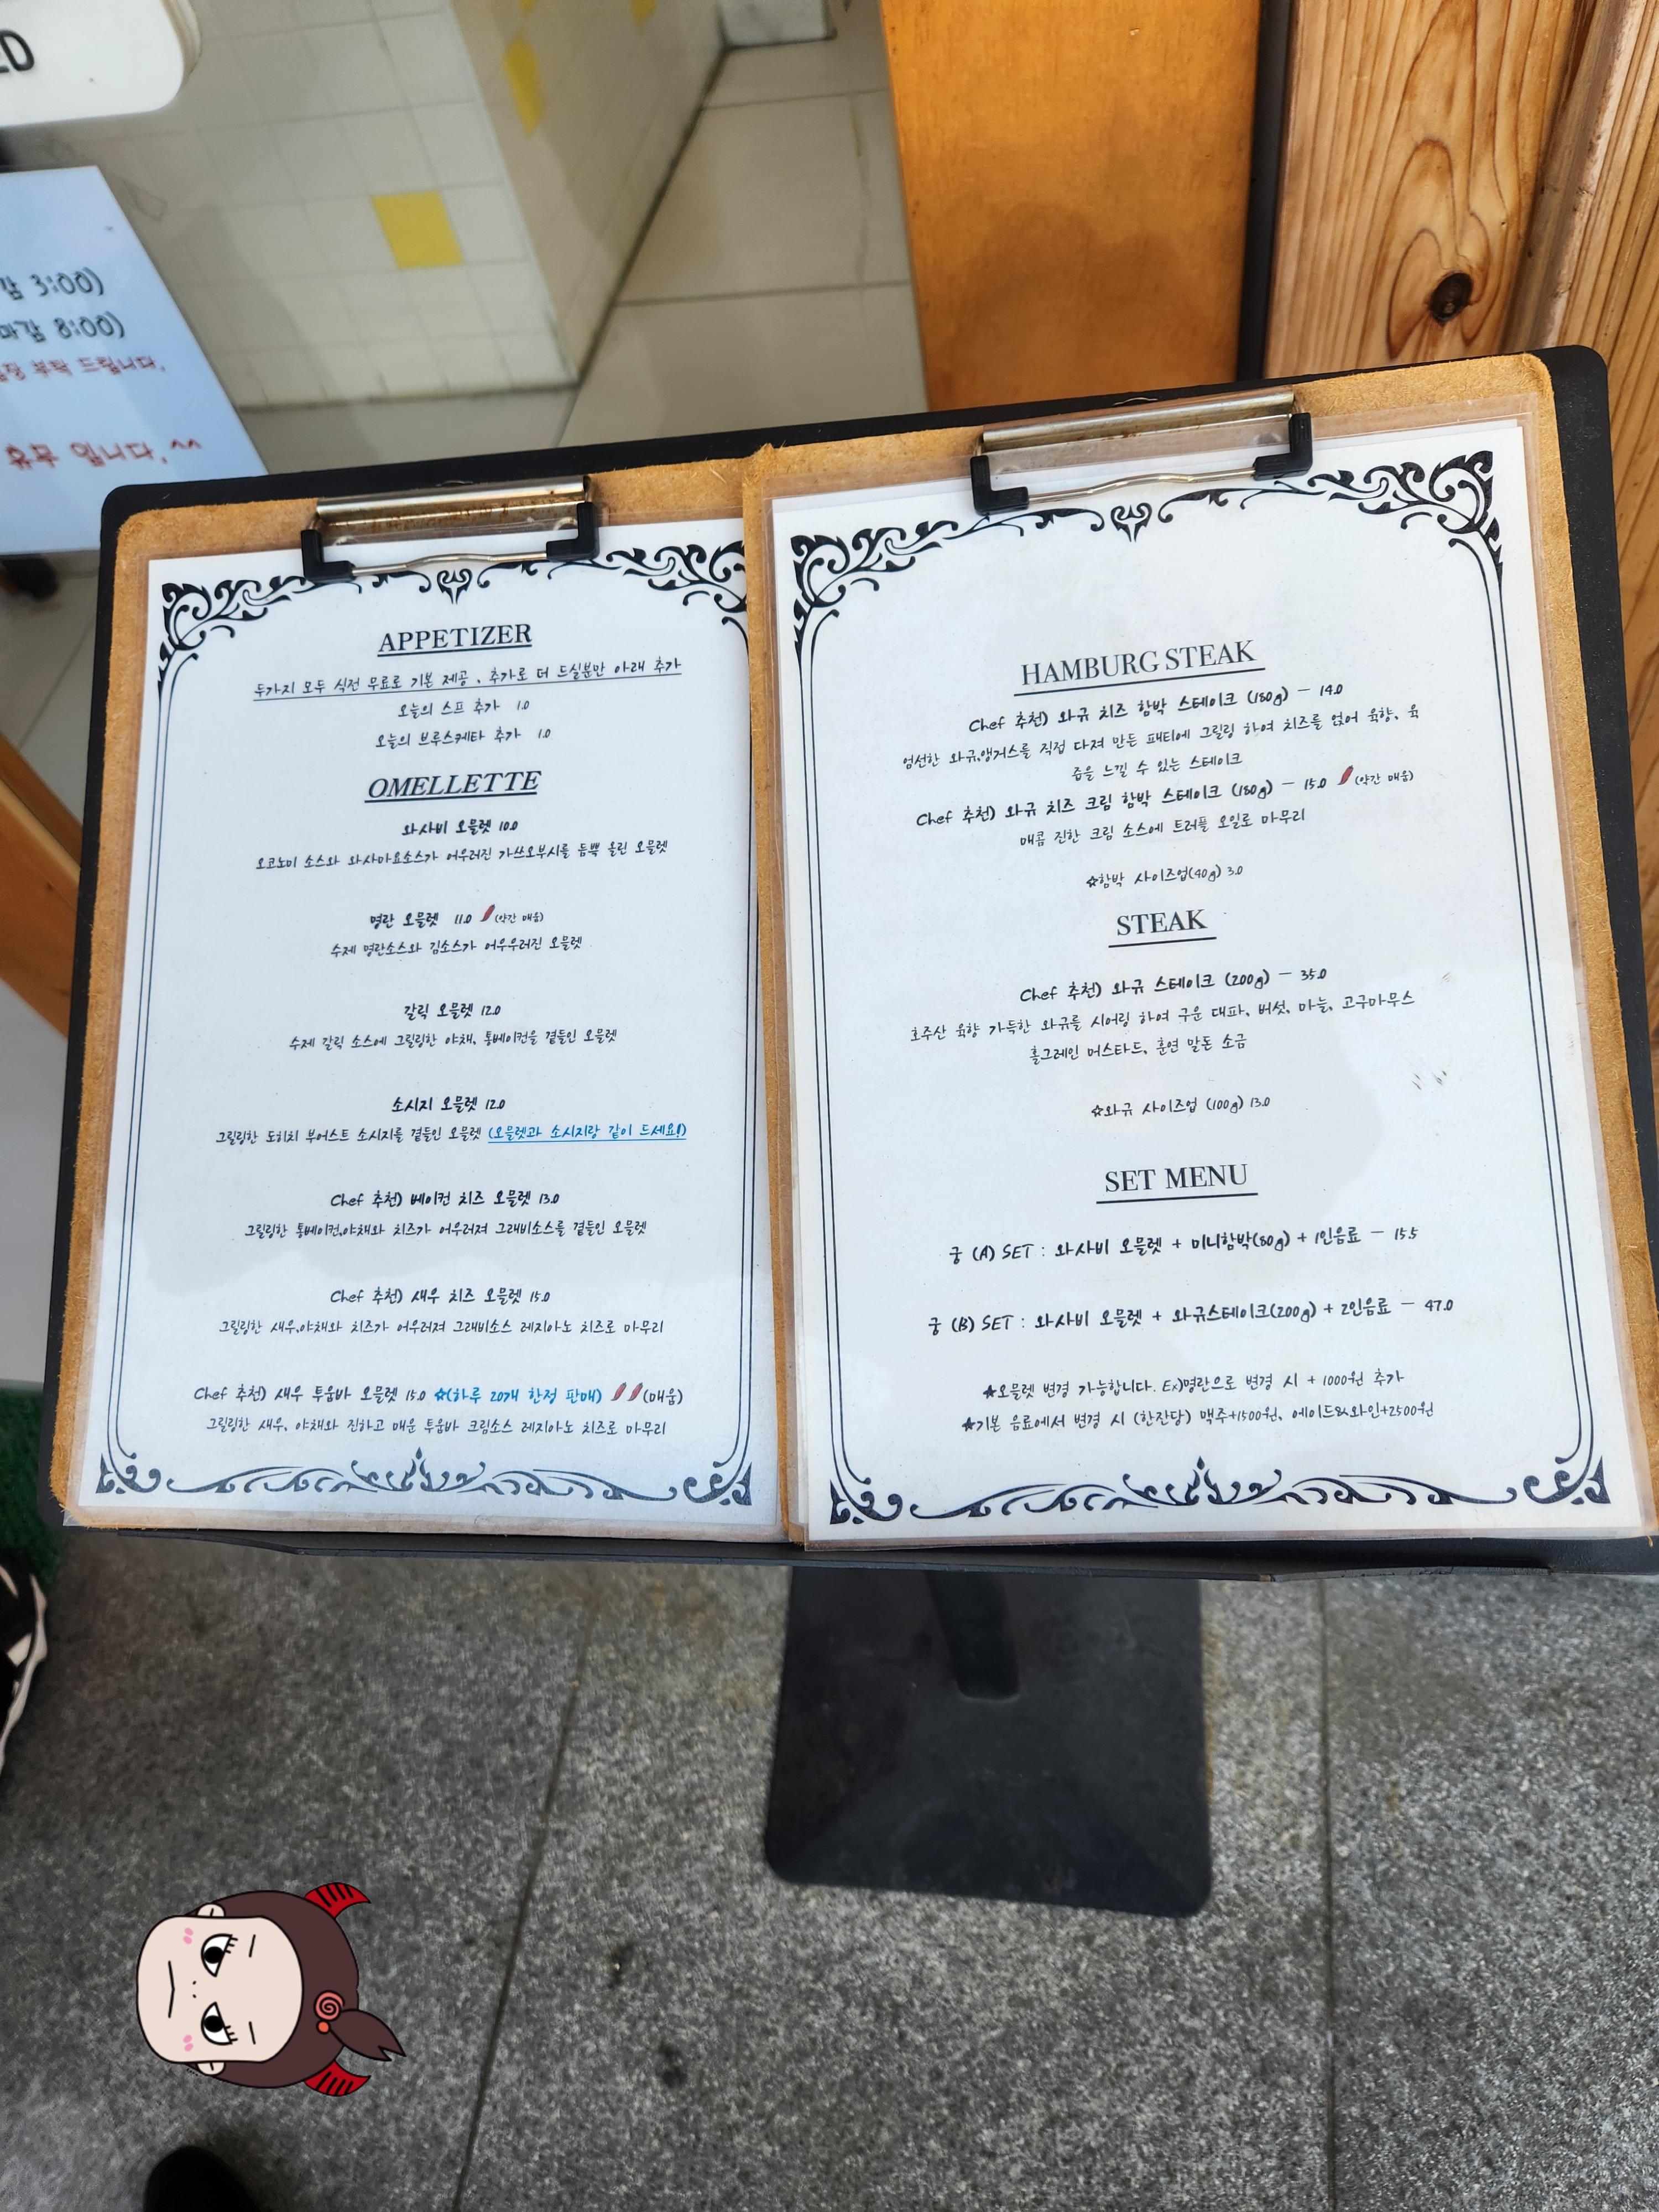 ED
감 3:00)
마감 8:00)
부탁 드립니다.
휴무 입니다.^^
APPETIZER
두가지 모두 식전 무료로 기본 제공, 추가로 더 드실분만 아래 추가
오늘의 스프 추가 1.0
오늘의 브루스케타 추가 1.0
OMELLETTE
와사비 오믈렛 10.0
오코노미 소스와 와사마요소스가 어우러진 가쓰오부시를 듬뿍 올린 오믈렛
명란 오믈렛 11.0 (약간 매움)
수제 명란소스와 김소스가 어우우러진 오믈렛
갈릭 오믈렛 12.0
수제 갈릭 소스에 그릴링한 야채, 통베이컨을 곁들인 오믈렛
소시지 오믈렛 12.0
그릴링한 도이치 부어스트 소시지를 곁들인 오믈렛 (오믈렛과 소시지랑 같이 드세요!)
Chef 추천) 베이컨 치즈 오믈렛 13.0
그릴링한 통베이컨,야채와 치즈가 어우러져 그래비소스를 곁들인 오믈렛
Chef 추천) 새우 치즈 오믈렛 15.0
그릴링한 새우,야채와 치즈가 어우러져 그래비소스 레지아노 치즈로 마무리
Chef 추천) 새우 투움바 오믈렛 15.0 ☆(하루 20개 한정 판매) (매움)
그릴링한 새우, 야채와 진하고 매운 투움바 크림소스 레지아노 치즈로 마무리
HAMBURG STEAK
Chef 추천) 와규 치즈 함박 스테이크 (180g) - 14.0
엄선한 와규,앵거스를 직접 다져 만든 패티에 그릴링 하여 치즈를 얹어 육향, 육
즙을 느낄 수 있는 스테이크
Chef 추천) 와규 치즈 크림 함박 스테이크 (180g) - 15.0 (약간 매움)
매콤 진한 크림 소스에 트러플 오일로 마무리
☆함박 사이즈업(40g) 3.0
STEAK
Chef 추천) 와규 스테이크 (200g) - 35.0
호주산 육향 가득한 와규를 시어링 하여 구운 대파, 버섯, 마늘, 고구마무스
홀그레인 머스타드, 훈연 말돈 소금
☆와규 사이즈업 (100g) 13.0
SET MENU
궁 (A) SET : 와사비 오믈렛 + 미니함박(80g) + 1인음료 - 15.5
궁 (B) SET : 와사비 오믈렛 + 와규스테이크(200g) + 2인음료 - 47.0
★오믈렛 변경 가능합니다. Ex)명란으로 변경 시 + 1000원 추가
★기본 음료에서 변경 시 (한잔당) 맥주+1500원, 에이드&와인+2500원